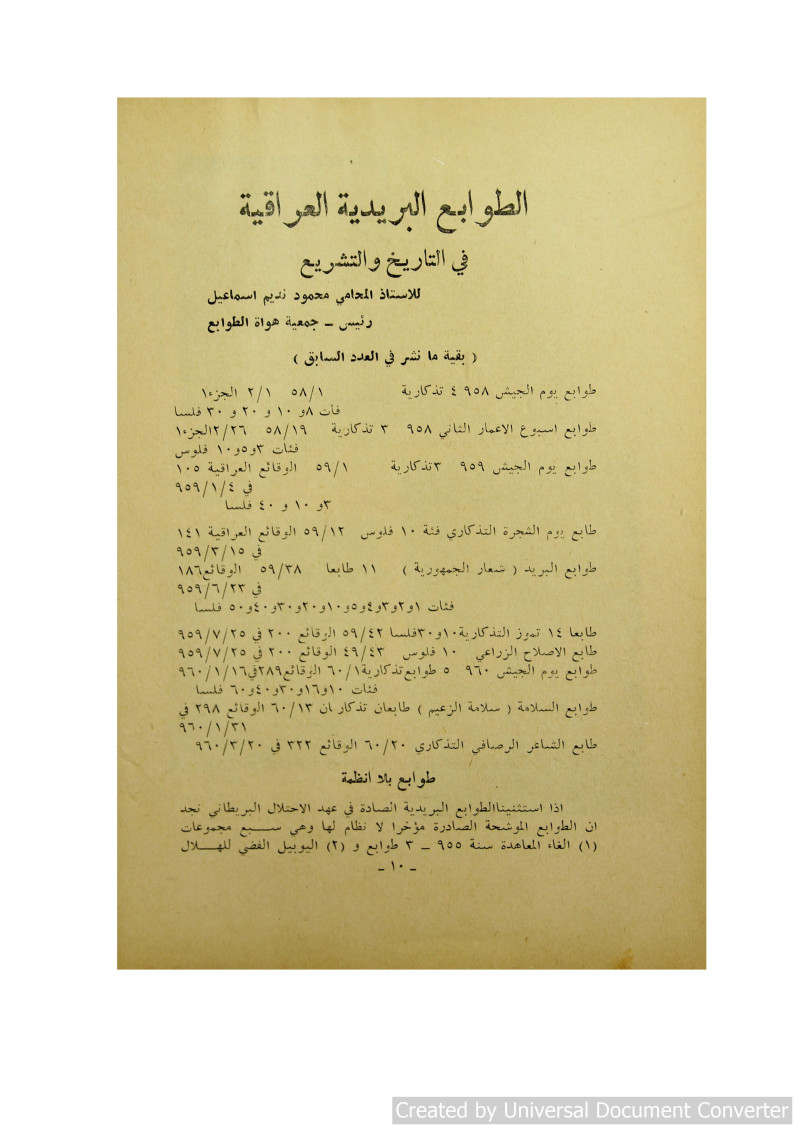 الطوابع البريدية العراقية
في التاريخ والتشريع
للاستاذ المحامي محمود نديم اسماعيل
رئيس – جمعية هواة الطوابع
( بقية ما نشر في العدد السابق )
طوابع يوم الجيش ٩٥٨ ٤ تذكارية ٥٨/١ ٢/١ الجزء١
فأت ٨و ١٠ و ٢٠ و ٣٠ فلسا
طوابع اسبوع الاعمار الثاني ٩٥٨ ٣ تذكارية ٥٨/١٩ ٢/٢٦الجزء١
فئات ٣و٥و١٠ فلوس
طوابع يوم الجيش ٩٥٩ ٣تذكارية ٥٩/١ الوقائع العراقية ١٠٥
في ٩٥٩/١/٤
٣و ١٠ و ٤٠ فلسا
طابع يوم الشجرة التذكاري فئة ١٠ فلوس ٥٩/١٢ الوقائع العراقية ١٤١
في ٩٥٩/٣/١٥
طوابع البريد ( شعار الجمهورية ) ١١ طابعا ٥٩/٣٨ الوقائع١٨٦
في ٩٥٩/٦/٢٣
فئات ١و٢و٣و٤و٥و١٠و٢٠و٣٠و٤٠و٥٠ فلسا
طابعا ١٤ تموز التذكارية١٠و٣٠فلسا ٥٩/٤٢ الوقائع ٢٠٠ في ٩٥٩/٧/٢٥
طابع الاصلاح الزراعي ١٠ فلوس ٤٩/٤٣ الوقائع ٢٠٠ في ٩٥٩/٧/٢٥
طوابع يوم الجيش ٩٦٠ ٥ طوابع تذكارية٦٠/١ الوقائع٢٨٩في٩٦٠/١/١٦
فئات ١٠و١٦و٣٠و٤٠و٦٠ فلسا
طوابع السلامة ( سلامة الزعيم ) طابعان تذكاريان ٦٠/١٣ الوقائع ٢٩٨ في
٩٦٠/١/٣١
طابع الشاعر الرصافي التذكاري ٦٠/٢٠ الوقائع ٣٢٢ في ٩٦٠/٣/٢٠
طوابع بلا انظمة
اذا استثنيناالطوابع البريدية الصادة في عهد الاحتلال البريطاني نجد
ان الطوابع الموشحة الصادرة مؤخرا لا نظام لها وهي سبع مجموعات
(١) الغاء المعاهدة سنة ٩٥٥ – ٣ طوابع و (٢) اليوبيل الفضي للهلال
– ١٠ –
Created by Universal Document Converter